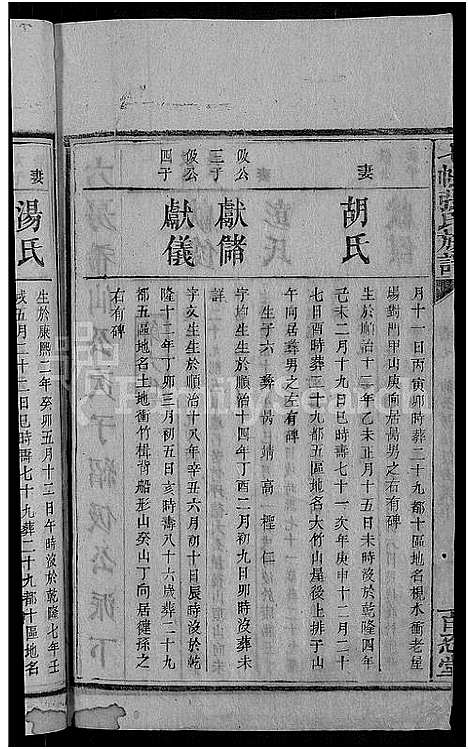 七修張氏族譜
百忍堂
月十一日丙寅卯時葬二十九都十區地名楓水衝老屋
場對門甲山庚向居昺男之右有碑
妻
胡氏
生於順治十二年乙未正月十五日未時沒於乾隆四年
己未二月十九日巳時壽八十五
七日酉時葬二十九都五區地名大竹山屋後上排子山
午向居彝男之左有碑
生子六 彝 昺 靖 高 樫 仁
伋公三子
獻儲
字均生生於順治十四年丁酉二月初九日卯時沒葬未
詳
伋公四子
獻儀
字文生生於順治十八年辛丑六月初十日辰時沒於乾
隆十二年丁卯三月初五日亥時壽八十六歲葬二十九
都五區地名土地衝竹楫背船形山癸山丁向居健孫之
右有碑
妻
湯氏
生於康熙二年癸卯五月十三日午時沒於乾隆七年壬
戌五月二十二日巳時壽七十九葬二十九都十區地名